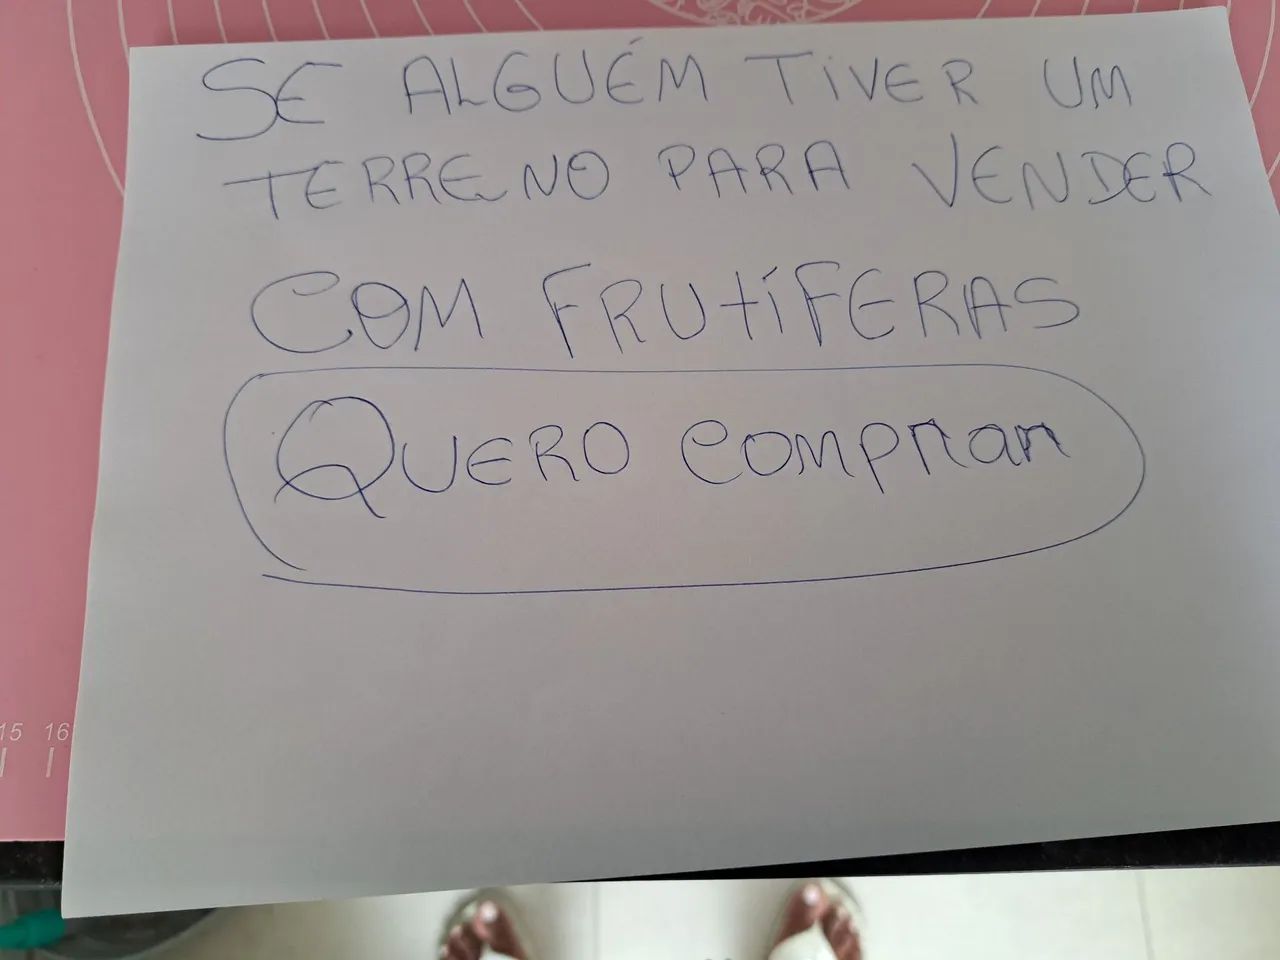 SE ALGUÉM TIVER UM
TERRENO PARA VENDER
COM FRUTÍFERAS
QUERO comprar
15 16